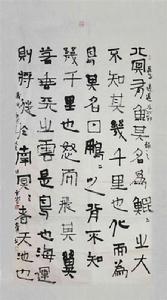 北冥有魚其名為鯤〻之大
不知其幾千里也化而為
鳥其名曰鵬〻之背不知
其幾千里也怒而飛其翼
若垂天之雲是鳥也海運
則將徙於南冥〻者天池也